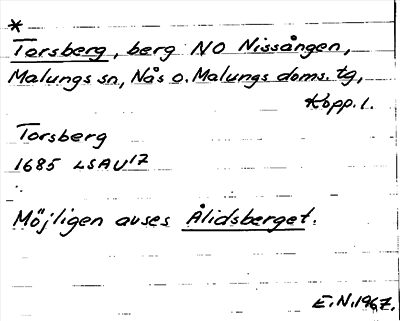 *
Torsberg, berg NO Nissången,
Malungs sn, Nås o. Malungs doms. tg,
Kopp. l.
Torsberg
1685 LSAU17
Möjligen avses Ålidsberget.
E.N. 1967.